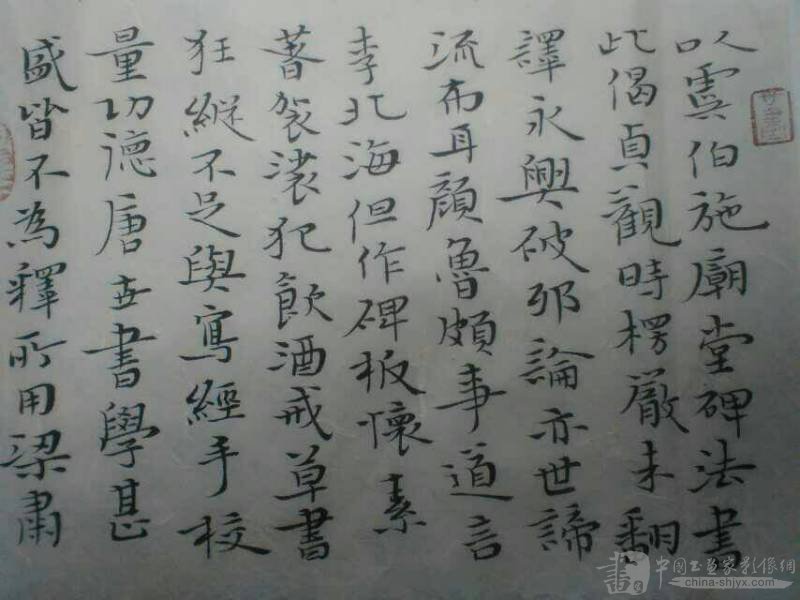 以虞伯施廟堂碑法書
此偈貞觀時楞嚴未翻
譯永興破邪論亦世諦
流布耳顏魯頗事道言
李北海但作碑板懷素
著袈裟犯飲酒戒草書
狂縱不足與寫經手校
量功德唐世書學甚
盛皆不為釋所用梁肅
中国书画家影像網
china-shjyx.com